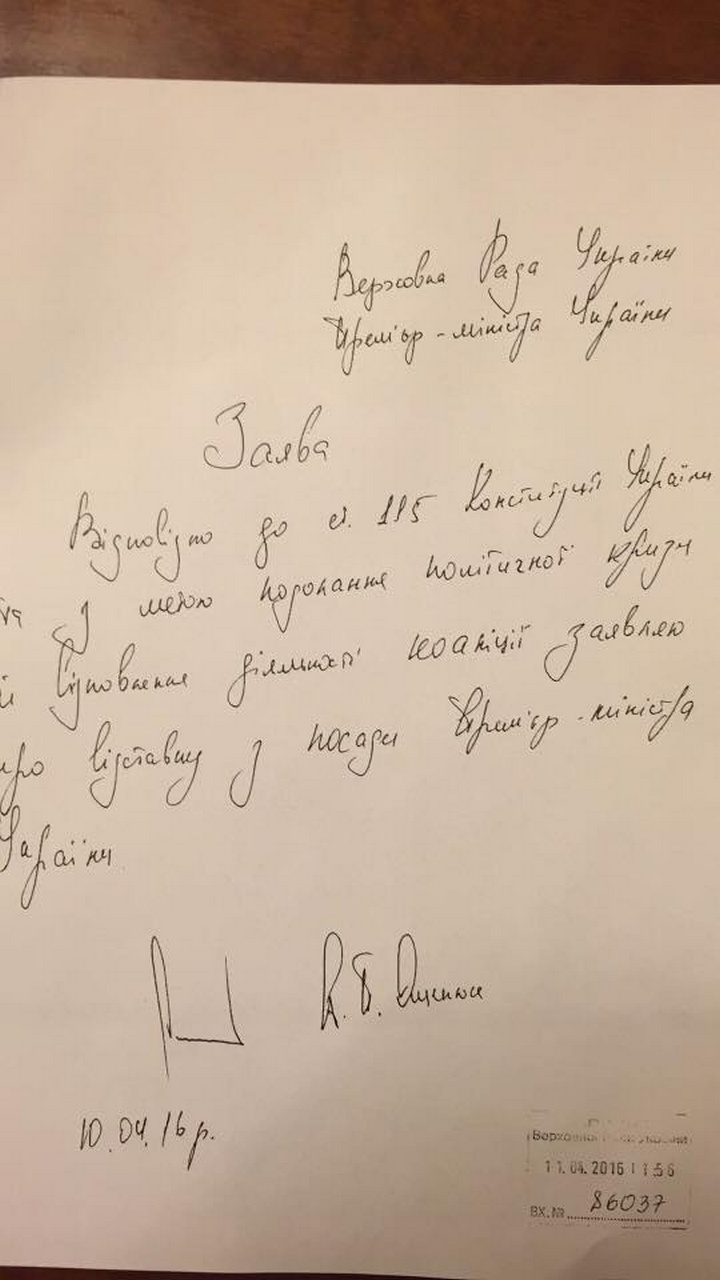 Верховна Рада України
Прем'єр-міністра України
Заява
Відповідно до ст. 115 Конституції України
та з метою подолання політичної кризи
й відновлення діяльності коаліції заявляю
про відставку з посади Прем'єр-міністра
України
А.П. Яценюк
10.04.16 р.
11.04.2016 11:56
ВХ.№ 86037